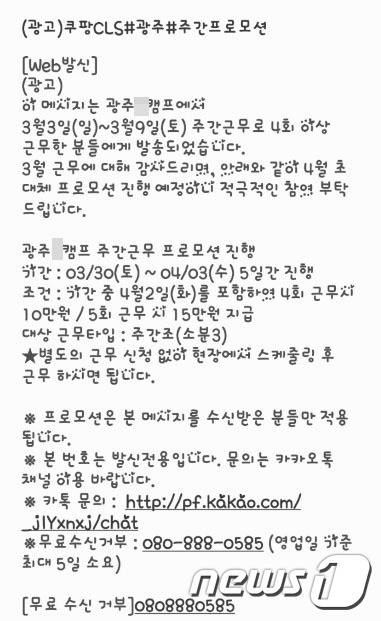 (광고)쿠팡CLS#광주#주간프로모션
[Web발신]
(광고)
이 메시지는 광주 캠프에서
3월3일(일)~3월9일(토) 주간근무로 4회 이상
근무한 분들에게 발송되었습니다.
3월 근무에 대해 감사드리며, 아래와 같이 4월 초
대체 프로모션 진행 예정이니 적극적인 참여 부탁
드립니다.
광주 캠프 주간근무 프로모션 진행
기간 : 03/30(토) ~ 04/03(수) 5일간 진행
조건 : 기간 중 4월2일(화)를 포함하여 4회 근무시
10만원 / 5회 근무 시 15만원 지급
대상 근무타입 : 주간조(소분3)
★별도의 근무 신청 없이 현장에서 스케줄링 후
근무 하시면 됩니다.
※ 프로모션은 본 메시지를 수신받은 분들만 적용
됩니다.
※ 본 번호는 발신전용입니다. 문의는 카카오톡
채널 이용 바랍니다.
※ 카톡 문의 : http://pf.kakao.com/
_jlYxnxj/chat
※무료수신거부 : 080-888-0585 (영업일 기준
최대 5일 소요)
[무료 수신 거부]0808880585
news1